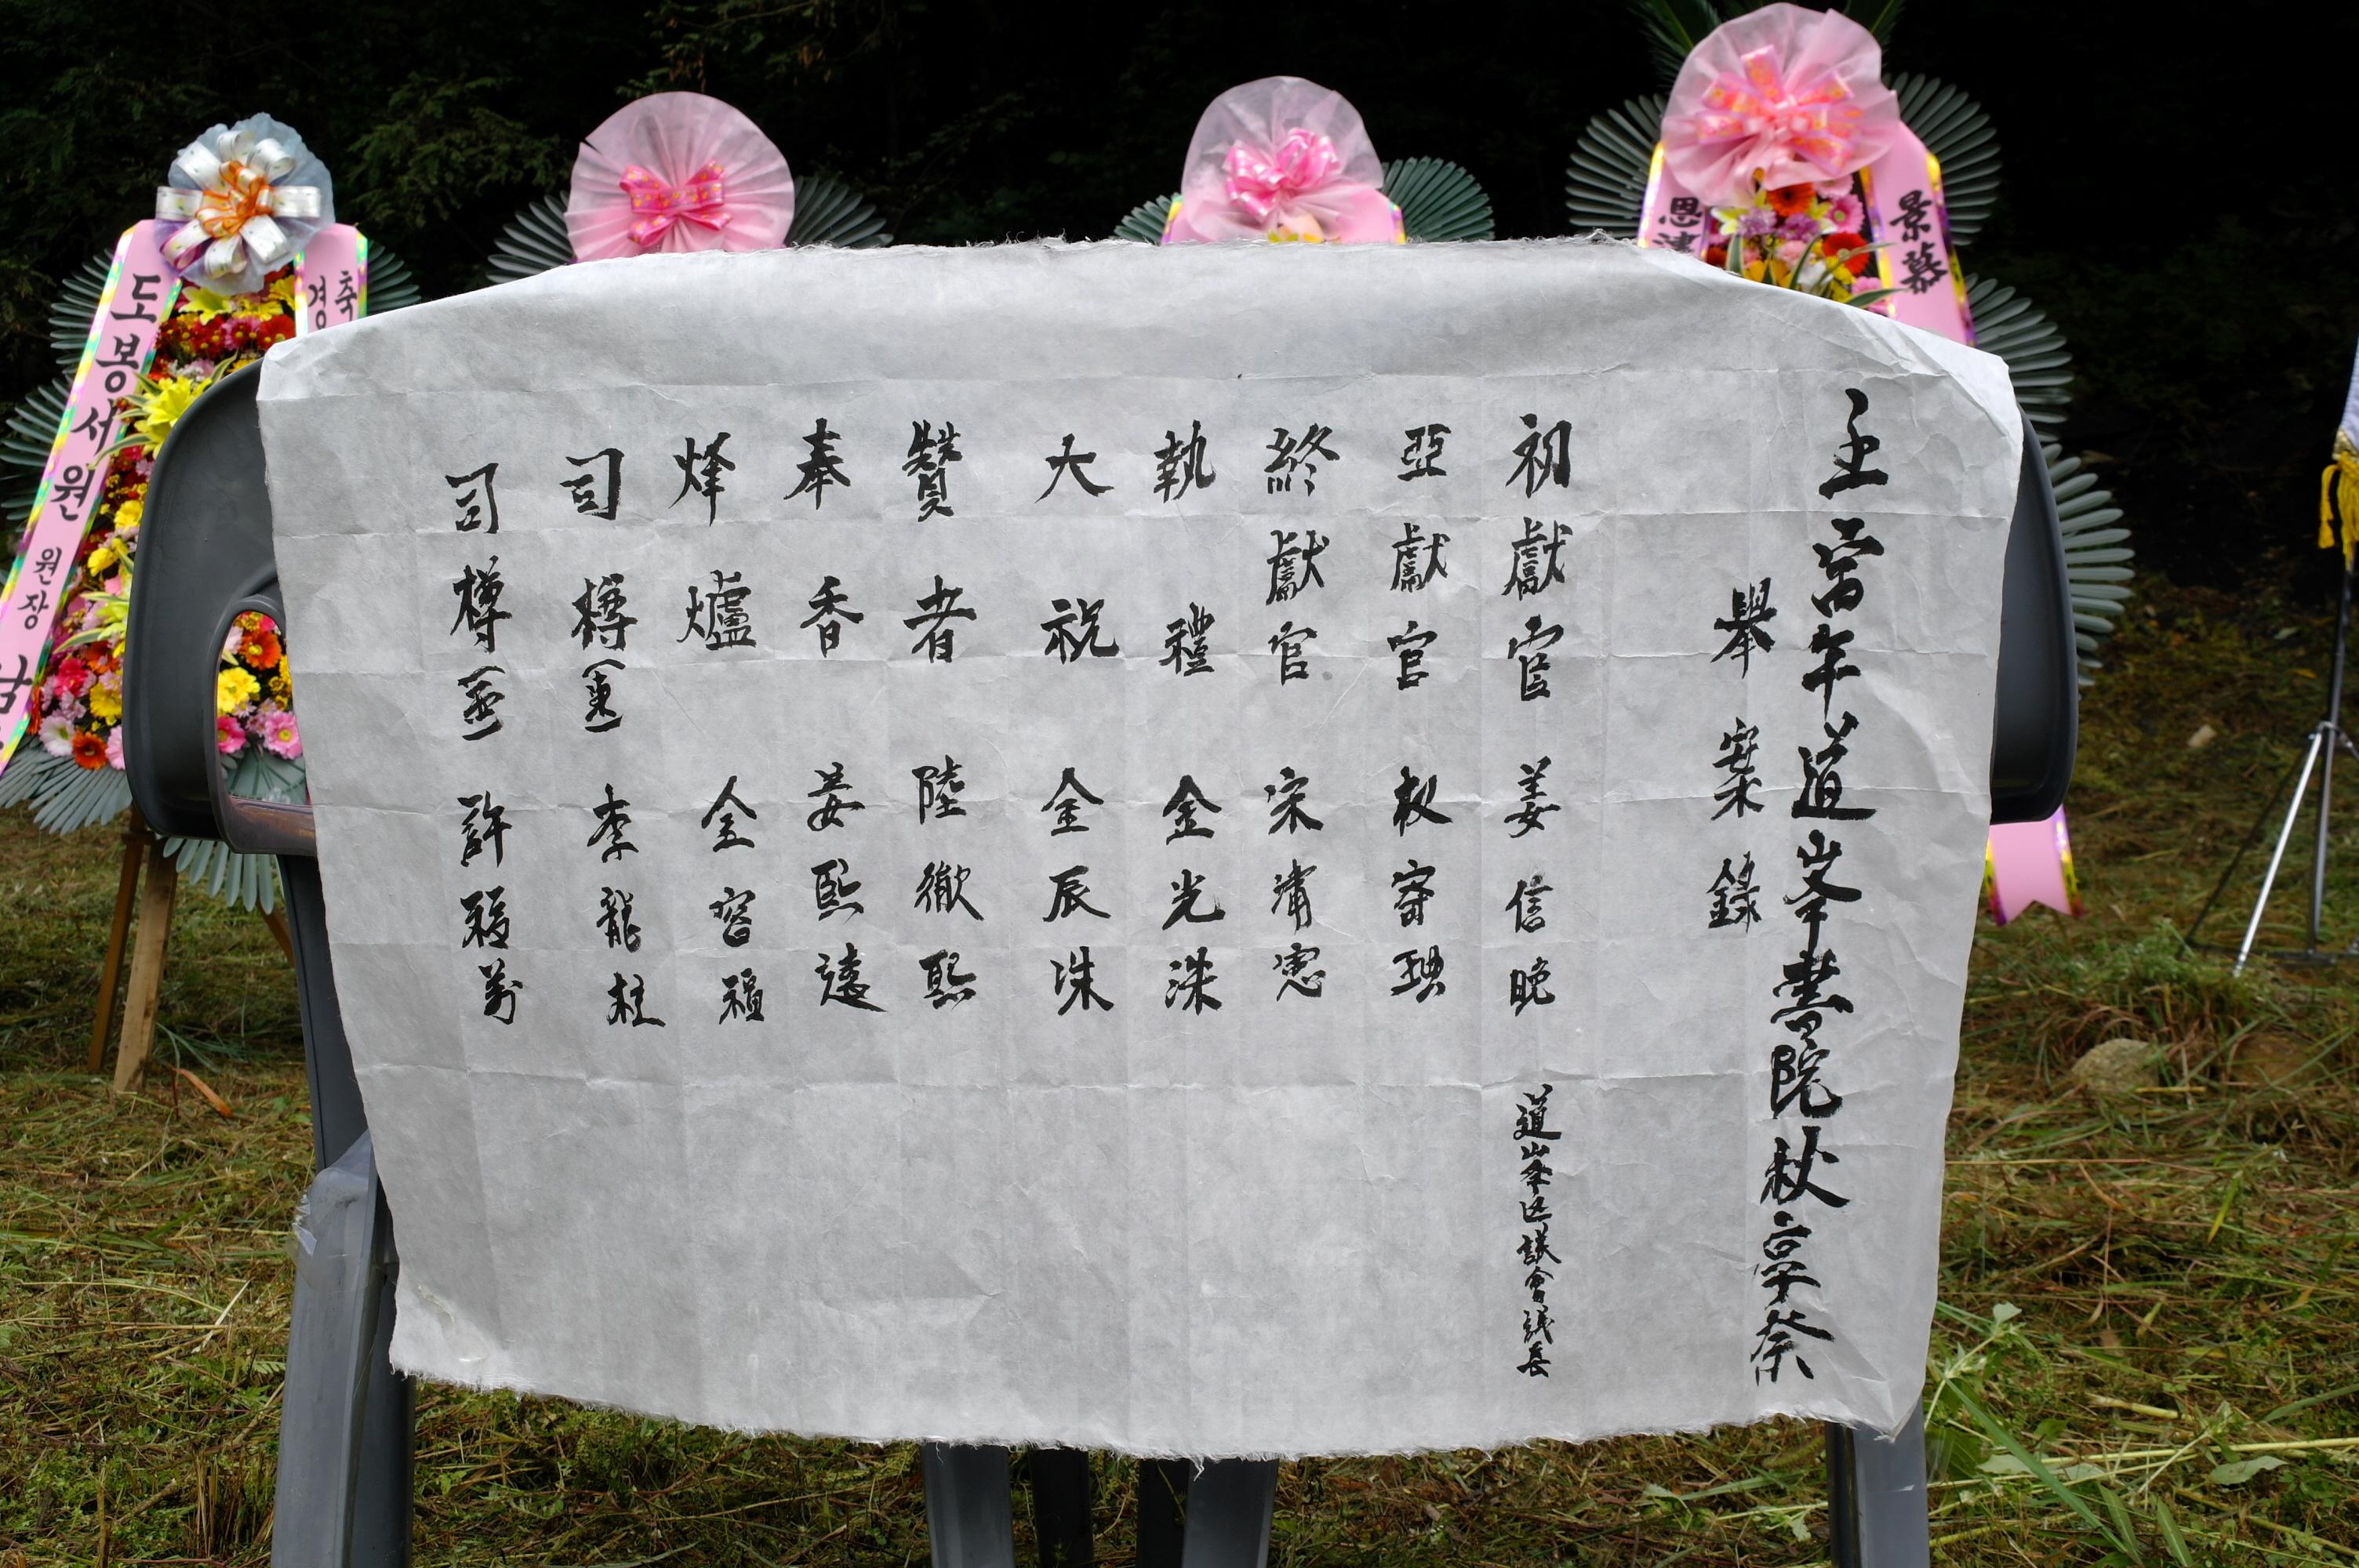 年道峯書院秋享祭
擧案錄
初獻官 姜信晚 道峯区議會議長
亞獻官 权寄琠
終獻官 宋淸憲
執禮 金光洙
大祝 金辰洙
贊者 陸徹熙
奉香 姜熙遠
烽爐 金容福
司樽(東) 李龍柱
司樽(西) 許福萬
도봉서원 원장
축
경
景慕
恩津